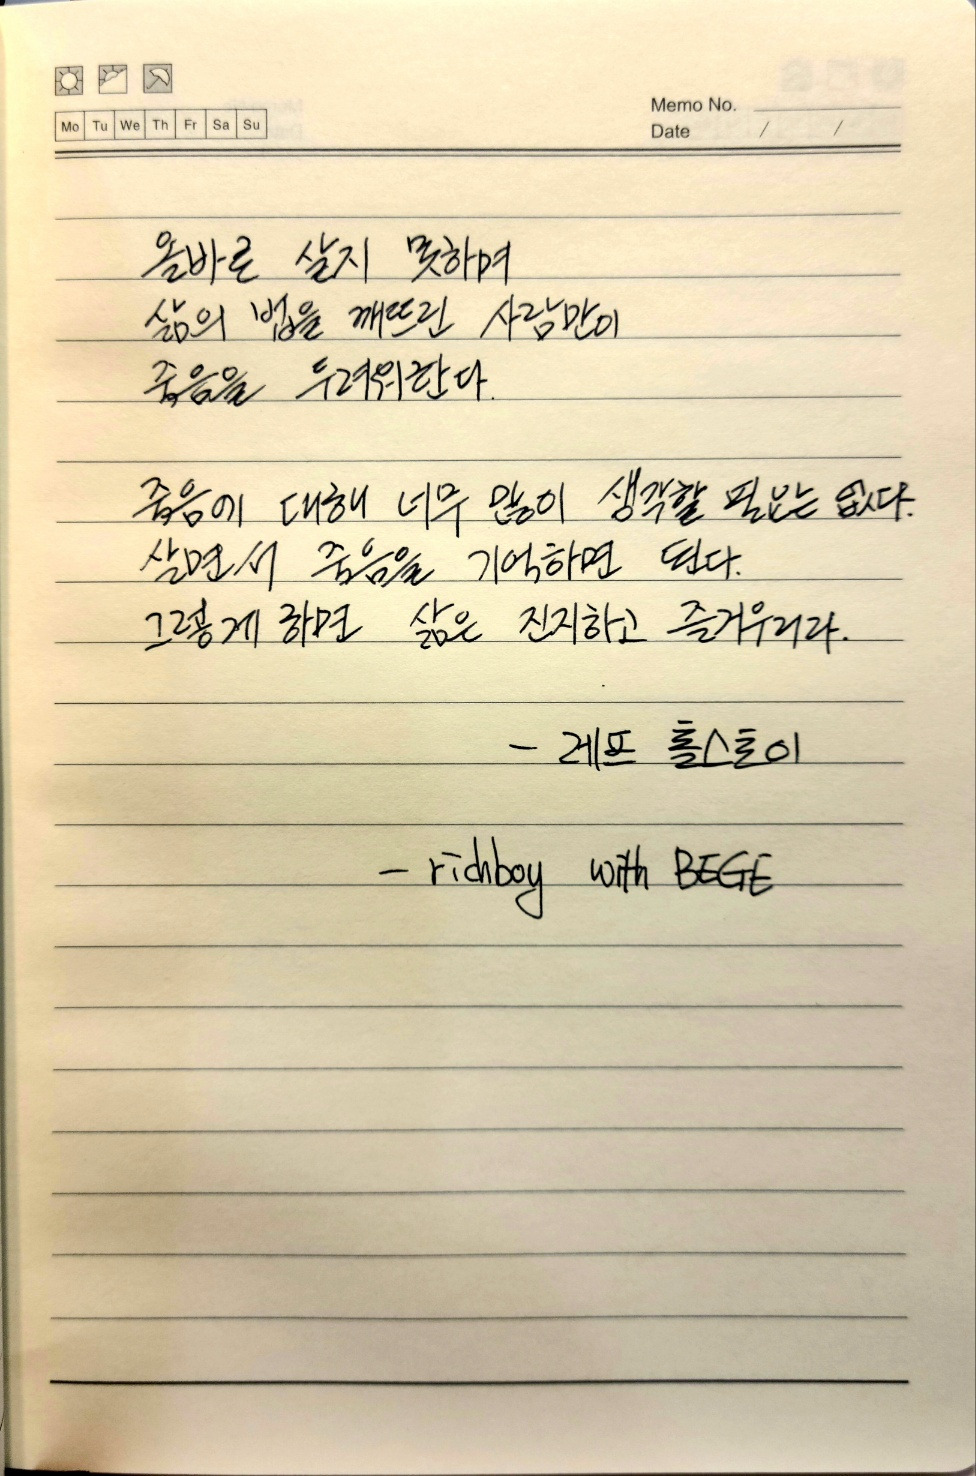 Memo No.
Mo Tu We Th Fr Sa Su
Date / /
올바른 살지 못하며
삶의 법을 깨뜨린 사람만이
죽음을 두려워한다.
죽음에 대해 너무 많이 생각할 필요는 없다.
살면서 죽음을 기억하면 된다.
그렇게 하면 삶은 진지하고 즐거우리라.
- 레프 톨스토이
- richboy with BEGE